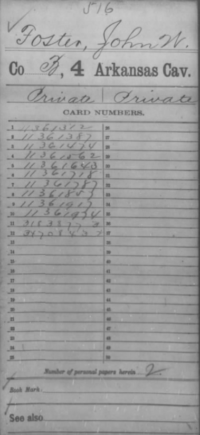 516
Foster, John W.
Co B, 4 Arkansas Cav.
Private Private
CARD NUMBERS.
1 11361312
2 11361387
3 11361474
4 11361562
5 11361643
6 11361718
7 11361787
8 11361853
9 11361917
10 11361934
11
12
13
14
15
16
17
18
19
20
21
22
23
24
Number of personal papers herein 2
Book Mark
See also